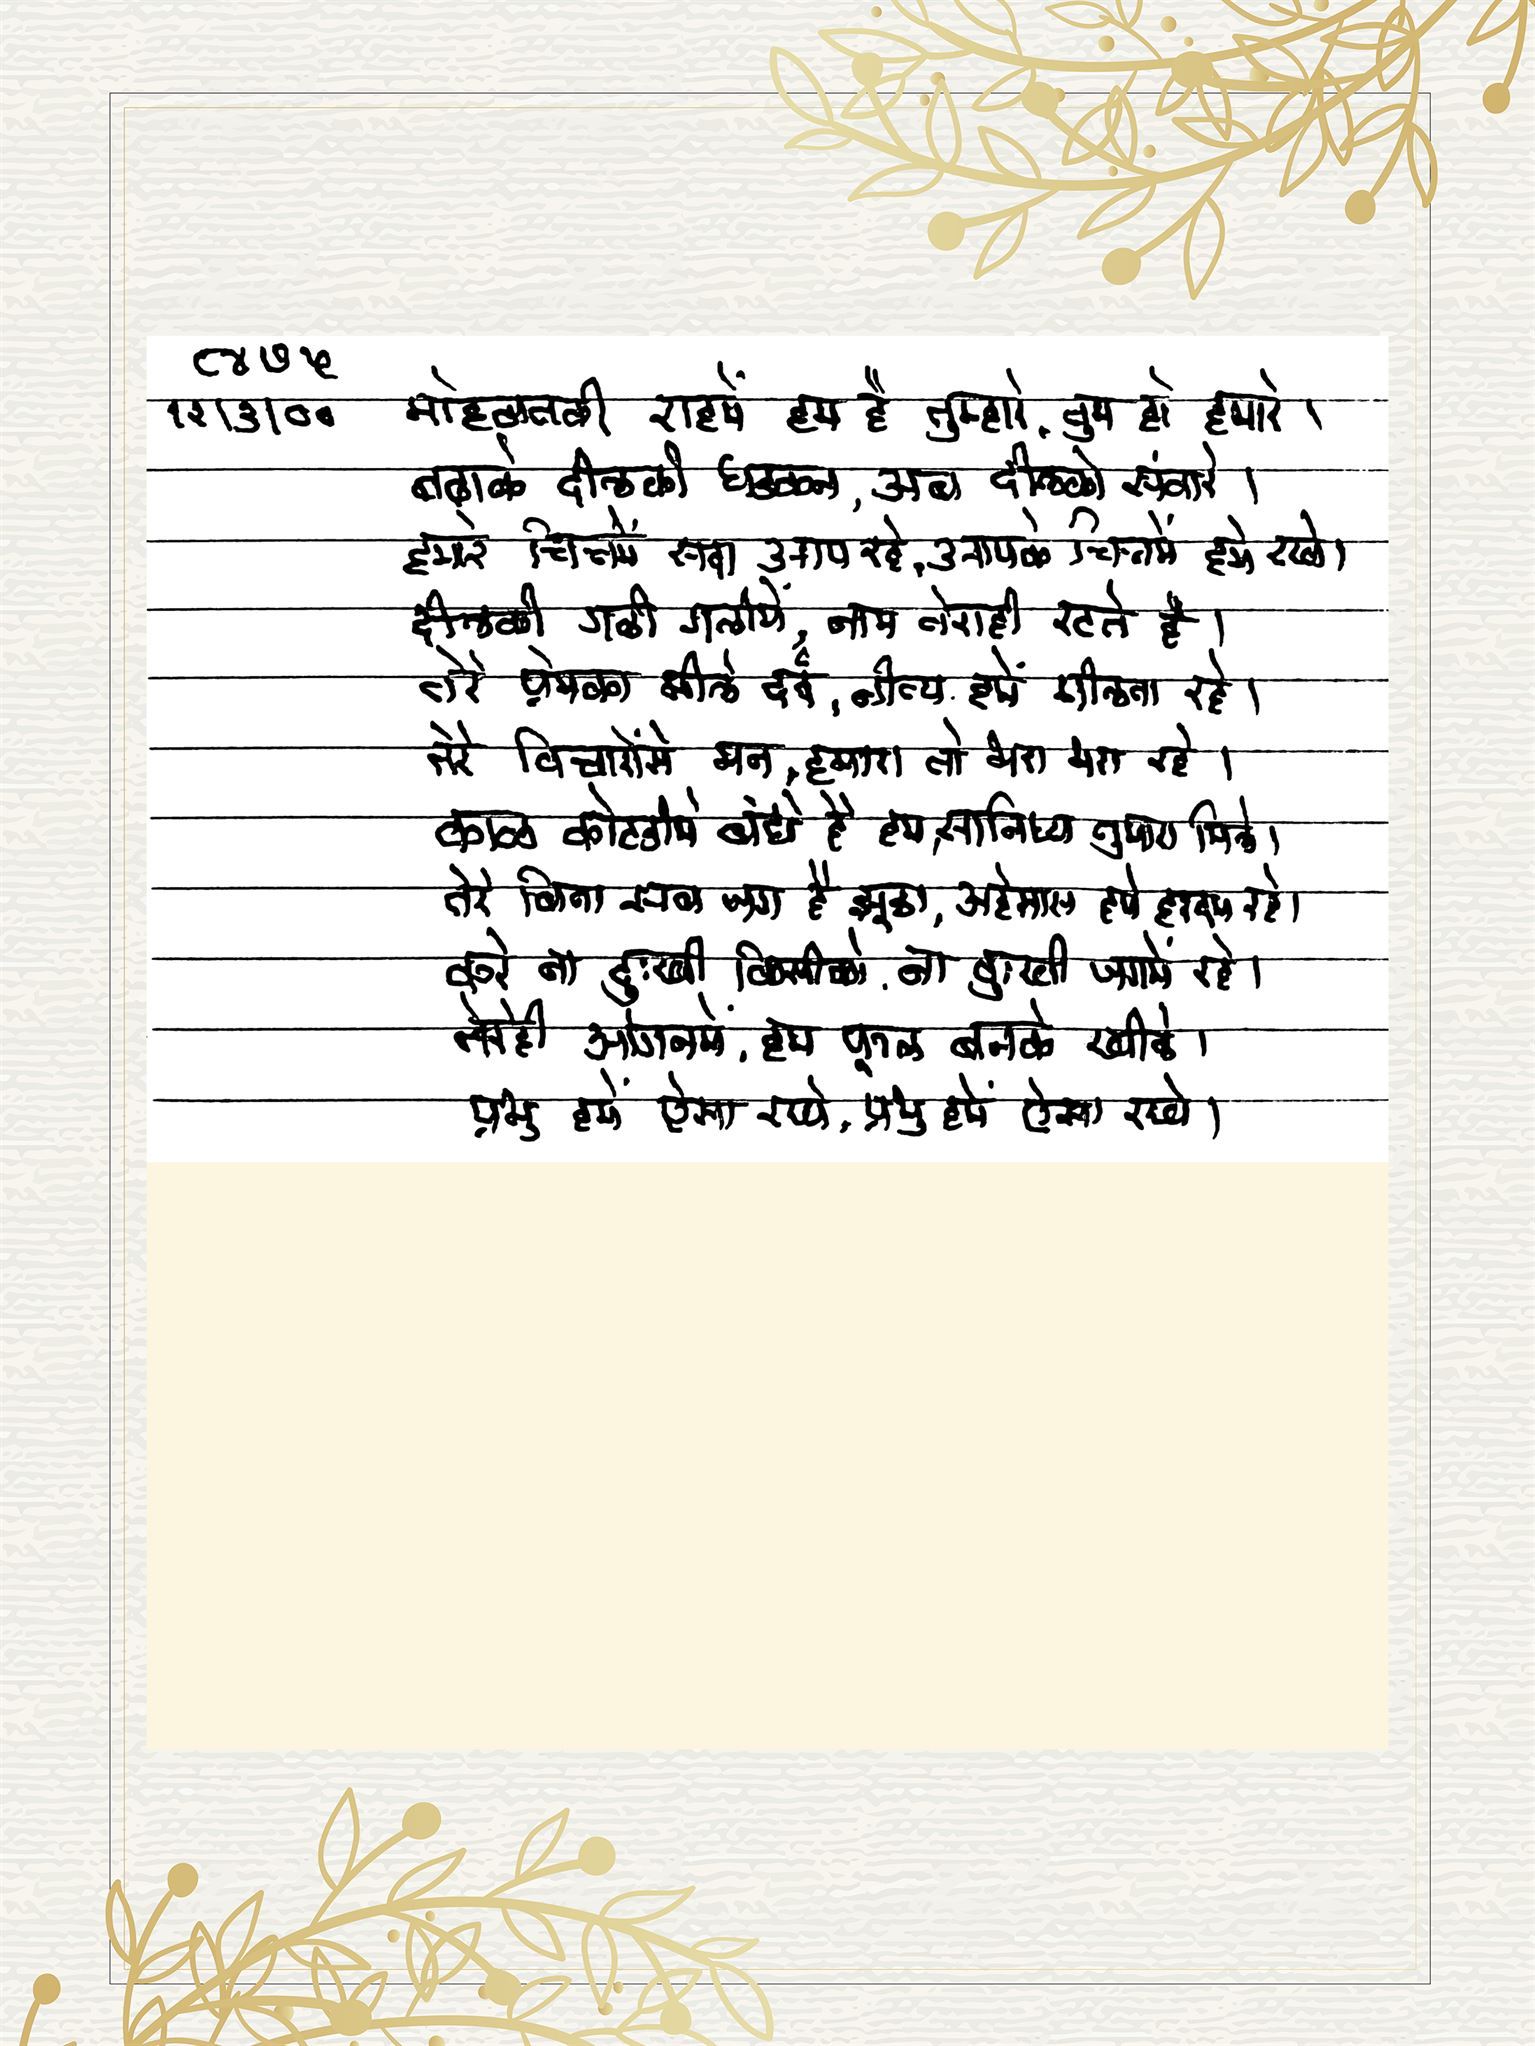 ८४७५
१२/३/००
मोहब्बतकी राहमें हम है तुम्हारे, तुम हो हमारे ।
बढ़ाके दीलकी धड़कन, अब दीलको संवारे ।
हमारे चित्तमें सदा आप रहे, आपके चित्तमें हमे रखे ।
दीलकी गली गलीमें, नाम तेराही रटते है ।
तेरे प्रेमका मीले दर्द, नीत्य हमें मीलता रहे ।
तेरे विचारोंमे मन, हमारा तो भरा भरा रहे ।
काल कोटडीमे बंधे है हम, सानिध्य तुमारा मिले ।
तेरे बिना सब जग है झूठा, अहेसास हमे हरदम रहे ।
करे ना दुःखी किसीको, ना दुःखी जगमें रहे ।
तेरेही आंगनमें, हम फूल बनके खीले ।
प्रभु हमें ऐसा रखे, प्रभु हमें ऐसा रखे ।